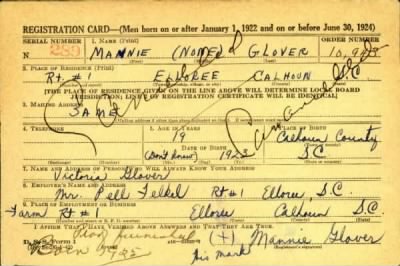 REGISTRATION CARD—(Men born on or after January 1, 1922 and on or before June 30, 1924)
SERIAL NUMBER 1. NAME (Print) ORDER NUMBER
289 MANNIE (NONE) GLOVER
2. PLACE OF RESIDENCE (Print)
Rt. #1 ELLOREE CALHOUN S.C.
[THE PLACE OF RESIDENCE GIVEN ON THE LINE ABOVE WILL DETERMINE LOCAL BOARD
JURISDICTION; LINE 2 OF REGISTRATION CERTIFICATE WILL BE IDENTICAL]
3. MAILING ADDRESS
SAME
Cancelled
4. TELEPHONE 5. AGE IN YEARS 6. PLACE OF BIRTH
19 Calhoun County
DATE OF BIRTH
(Don't know) 1923 S.C.
7. NAME AND ADDRESS OF PERSON WHO WILL ALWAYS KNOW YOUR ADDRESS
Victoria Glover
8. EMPLOYER'S NAME AND ADDRESS
Mr. Pell Felkel Rt #1 Elloree, S.C.
9. PLACE OF EMPLOYMENT OR BUSINESS
Farm Rt #1 Elloree Calhoun S.C.
I AFFIRM THAT I HAVE VERIFIED ABOVE ANSWERS AND THAT THEY ARE TRUE.
D. S. S. Form 1 (+) Mannie Glover
Born 1925 his mark